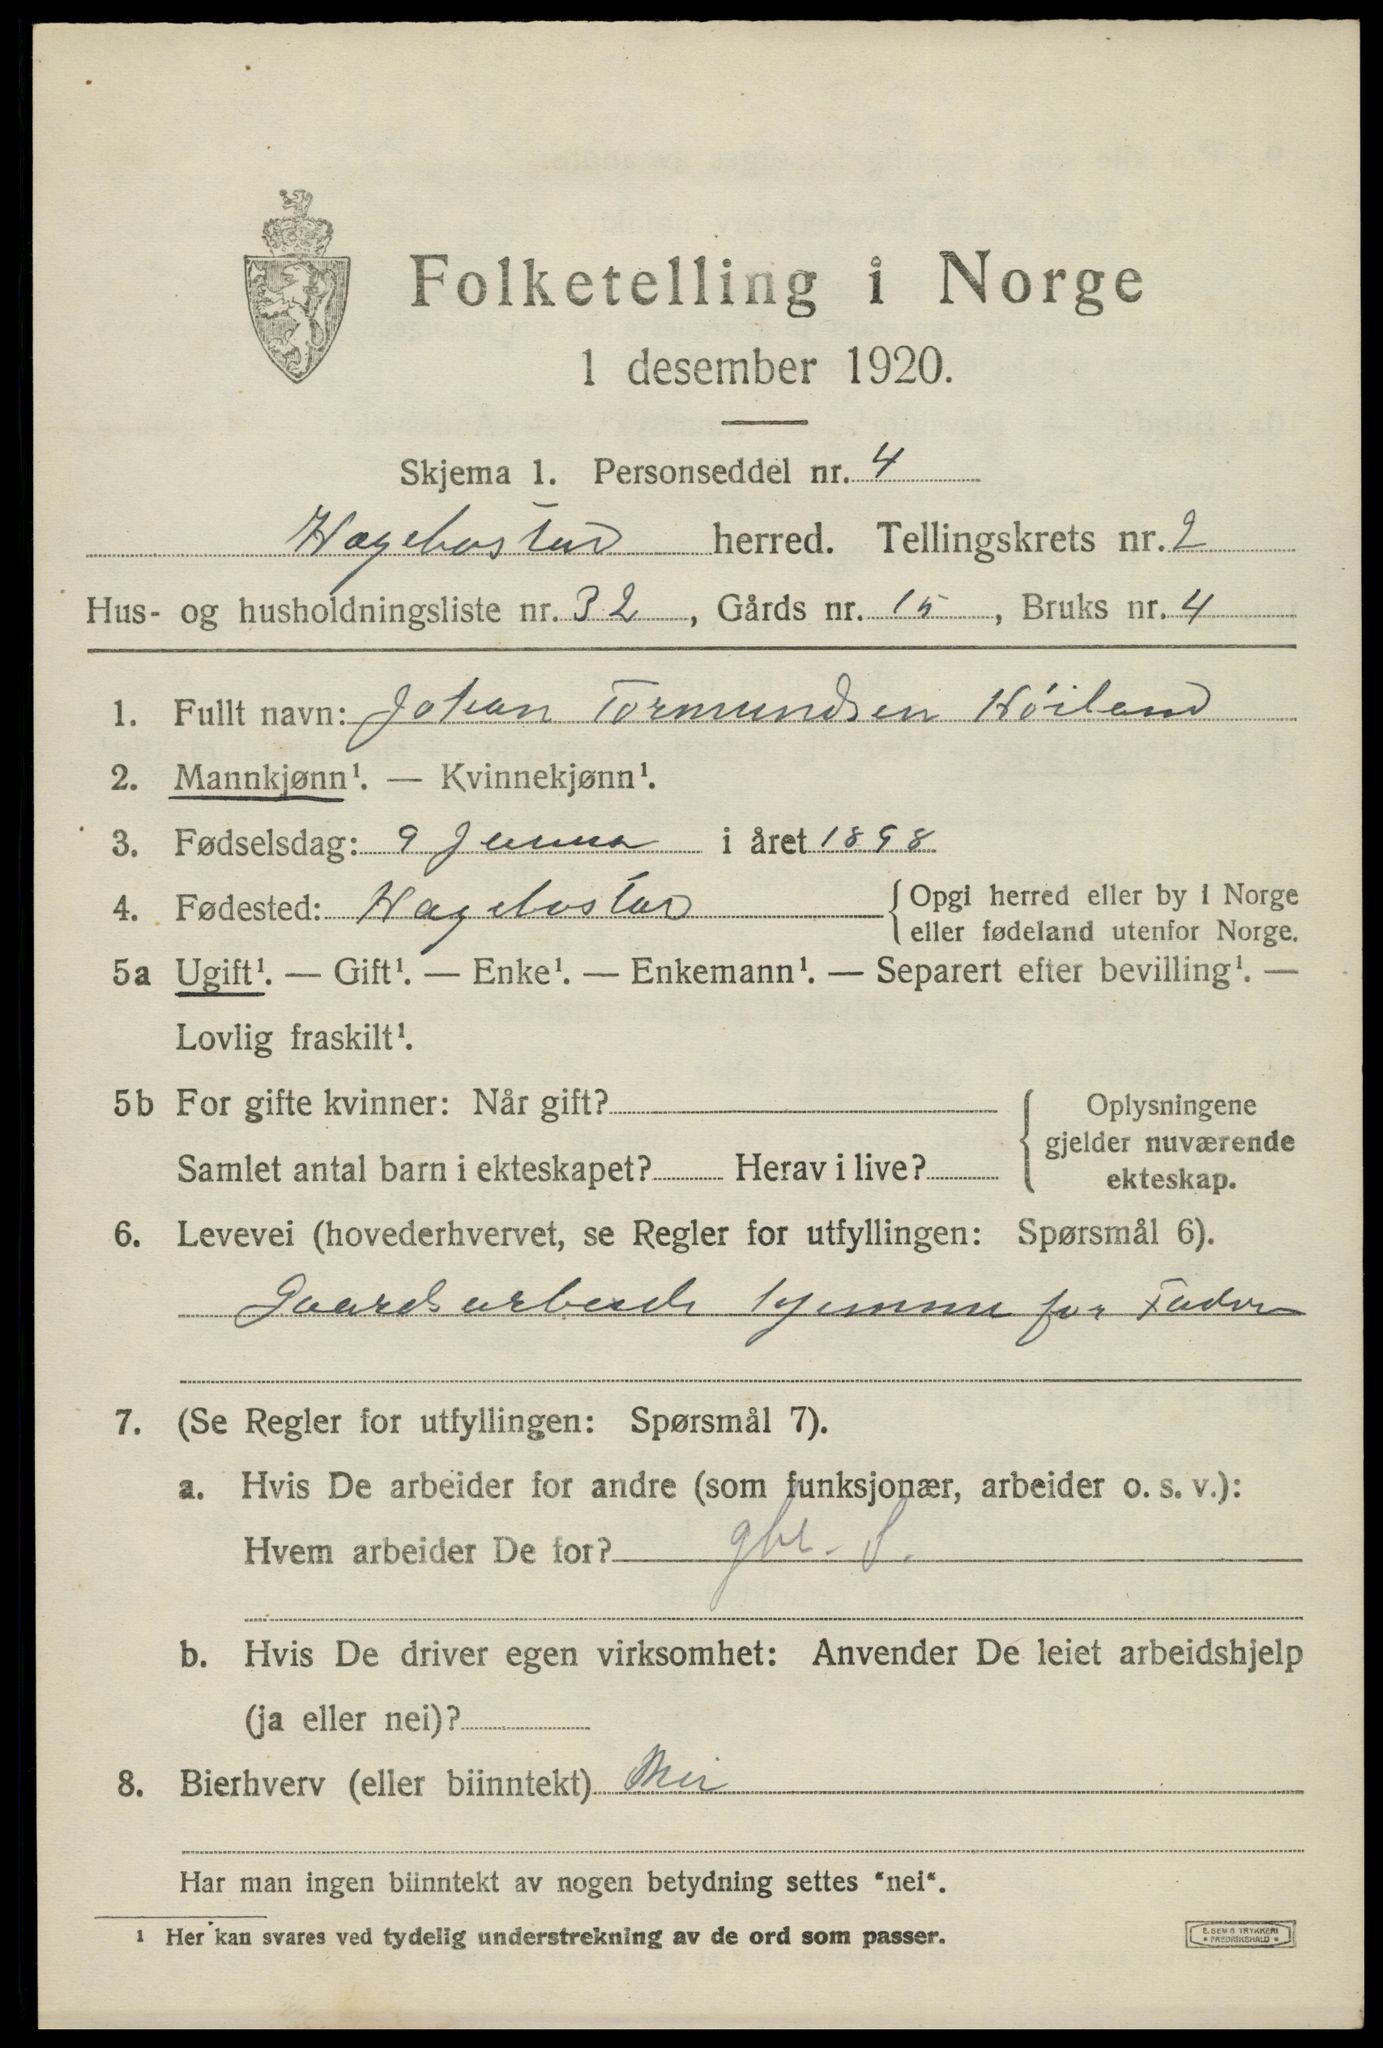 Folketelling i Norge
1 desember 1920.
Skjema 1. Personseddel nr. 4
Hægebostad herred. Tellingskrets nr. 2
Hus- og husholdningsliste nr. 32, Gårds nr. 15, Bruks nr. 4
1. Fullt navn: Johan Tormundsen Höiland
2. Mannkjønn¹. — Kvinnekjønn¹.
3. Fødselsdag: 9 Januar i året 1898
4. Fødested: Hægebostad {Opgi herred eller by i Norge
eller fødeland utenfor Norge.
5a Ugift¹. — Gift¹. — Enke¹. — Enkemann¹. — Separert efter bevilling¹. —
Lovlig fraskilt¹.
5b For gifte kvinner: Når gift? { Oplysningene
gjelder nuværende
Samlet antal barn i ekteskapet? Herav i live?
ekteskap.
6. Levevei (hovederhvervet, se Regler for utfyllingen: Spørsmål 6).
Gaardsarbeide hjemme for Fader
7. (Se Regler for utfyllingen: Spørsmål 7).
a. Hvis De arbeider for andre (som funksjonær, arbeider o. s. v.):
Hvem arbeider De for? gbr. S.
b. Hvis De driver egen virksomhet: Anvender De leiet arbeidshjelp
(ja eller nei)?
8. Bierhverv (eller biinntekt) Nei
Har man ingen biinntekt av nogen betydning settes "nei".
¹ Her kan svares ved tydelig understrekning av de ord som passer.
E. SEM'S TRYKKERI
• FREDRIKSHALD •